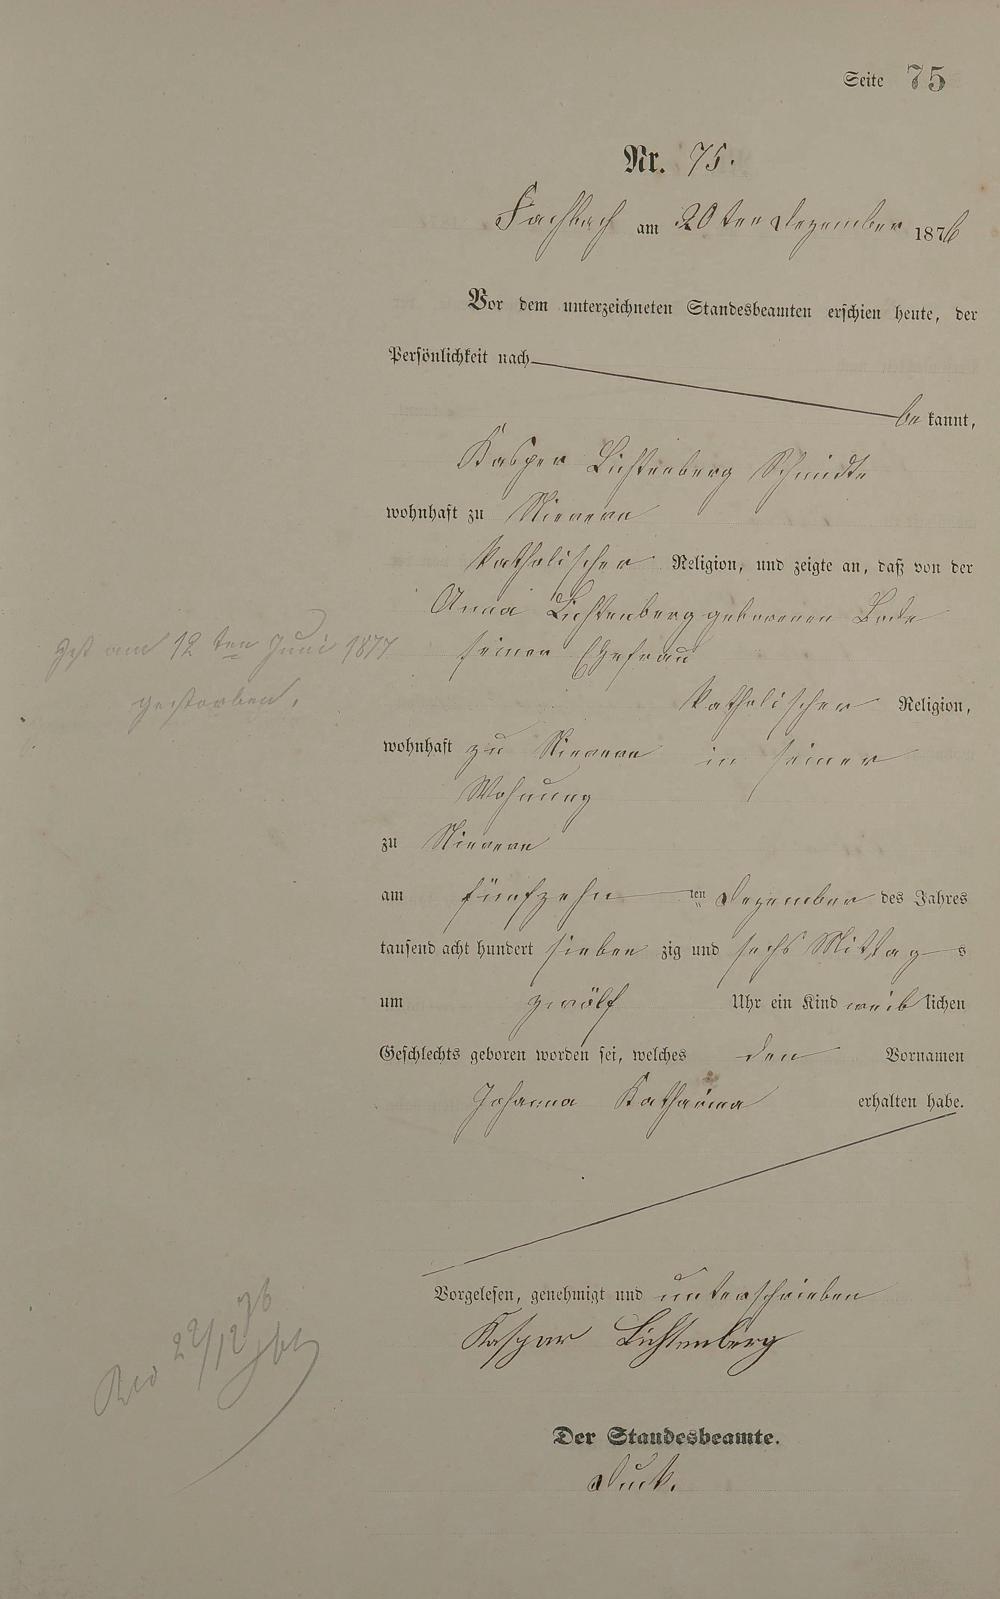 Seite 75
Nr. 75.
Fachbach am 20ten Dezember 1876
Vor dem unterzeichneten Standesbeamten erschien heute, der
Persönlichkeit nach
bekannt,
Kasper Lichtenberg Schmidte
wohnhaft zu Nievern
katholischer Religion, und zeigte an, daß von der
Anna Lichtenberg geborenen Bode
seiner Ehefrau
katholischer Religion,
wohnhaft zu Nievern in seiner
Wohnung
zu Nievern
am fünfzehnten Dezember des Jahres
tausend acht hundert siebenzig und sechs Mittags
um zwölf Uhr ein Kind weiblichen
Geschlechts geboren worden sei, welches den Vornamen
Johanna Katharina erhalten habe.
Vorgelesen, genehmigt und unterschrieben
Kaspar Lichtenberg
Der Standesbeamte.
Duck.
Ist am 12ten Juni 1877
gestorben.
Rev 22/12 76